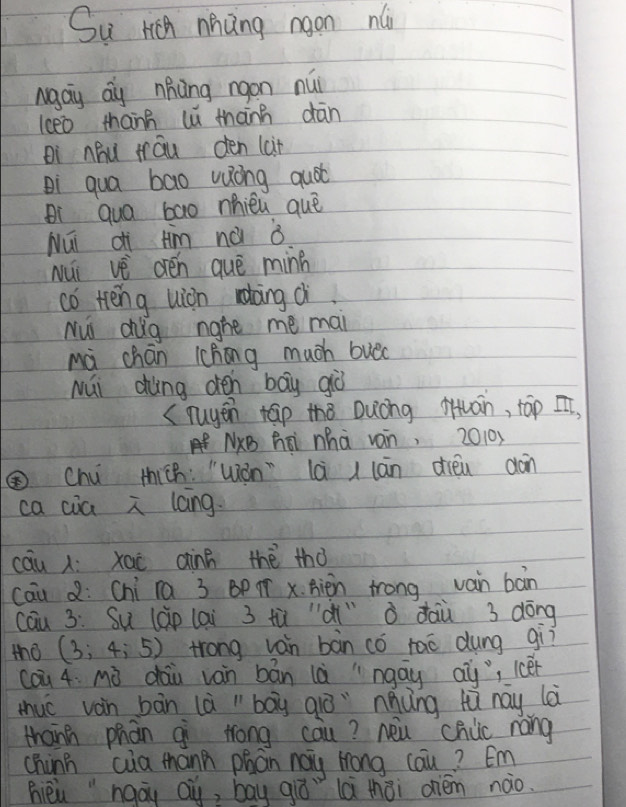 Sự tích những ngọn núi
Ngày ấy những ngọn núi
kéo thành lũ thành đàn
Đi như trâu đen lạt
Đi qua bao vường quốc
Đi qua bao nhiêu quê
Núi đi tìm nơi ở
Núi về đến quê mình
có tiếng lượn đáng ơi
Núi đứng nghe mê mải
Mà chân không muốn bước
Núi đứng đến bây giờ
< Tuyển tập thơ Dương Thuấn, tập III,
NXB hội nhà văn, 2010>
* Chú thích: "lượn" là 1 làn điệu dân
ca của làng.
câu 1: xác định thể thơ
câu 2: Chỉ ra 3 BPTT x.hiện trong văn bản
câu 3: Sự lặp lại 3 từ "đi" ở đầu 3 dòng
thơ (3; 4; 5) trong văn bản có tác dụng gì?
câu 4: Mở đầu văn bản là "ngày ấy", kết
thúc văn bản là "bây giờ" những từ này là
thành phần gì trong câu? Nêu chức năng
chính của thành phần này trong câu? Em
hiểu "ngày ấy, bây giờ" là thời điểm nào.